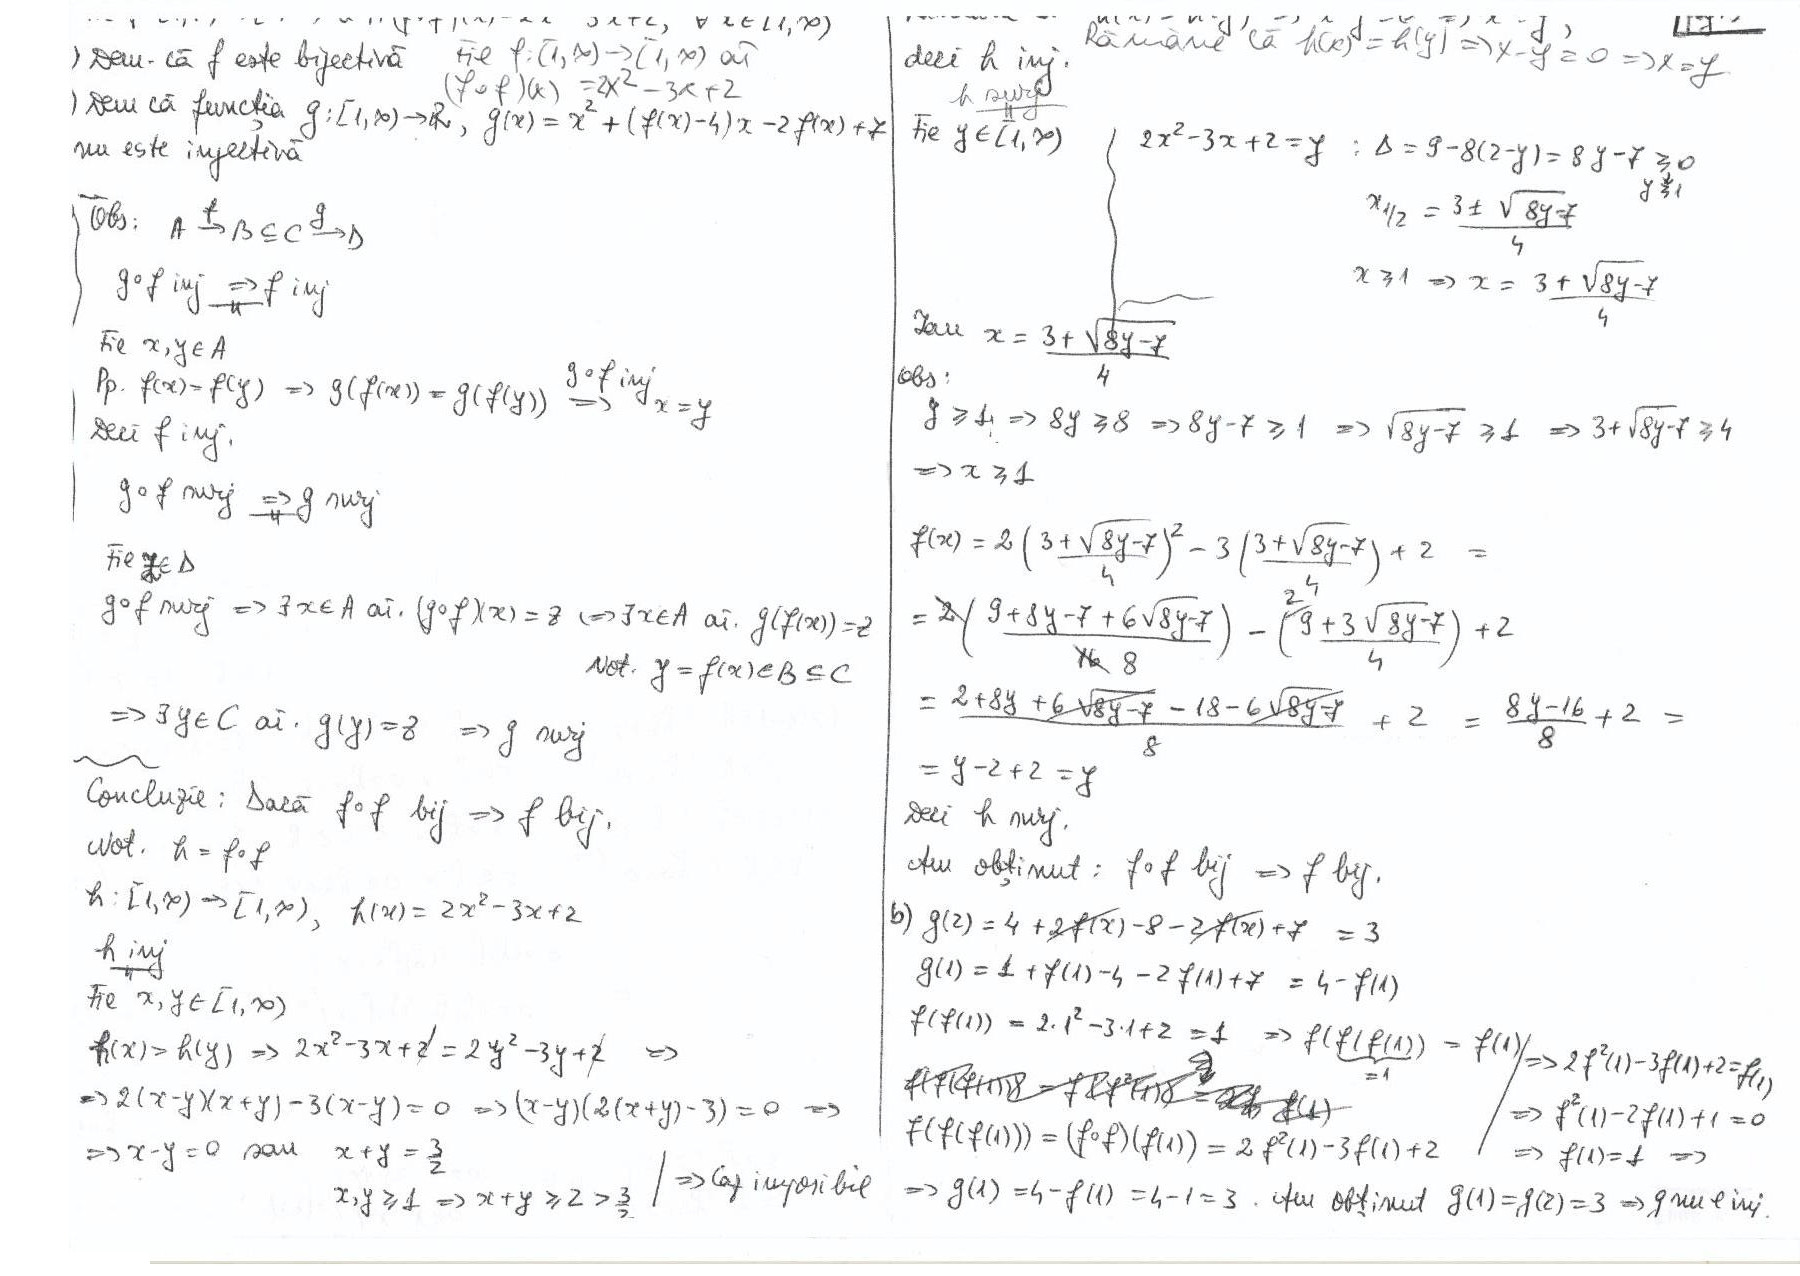 (f∘f)(x)=2x²-3x+2, ∀ x∈[1,∞)
) Dem. că f este bijectivă Fie f:[1,∞)→[1,∞) aî
(f∘f)(x) =2x²-3x+2
) Dem că funcția g:[1,∞)→R, g(x)=x²+(f(x)-4)x-2f(x)+7
nu este injectivă
Obs: A f→ B⊆C g→ D
g∘f inj => f inj
Fie x,y∈A
Pp. f(x)=f(y) => g(f(x))=g(f(y)) g∘f inj => x=y
Deci f inj.
g∘f surj => g surj
Fie z∈D
g∘f surj => ∃x∈A aî. (g∘f)(x)=z <=> ∃x∈A aî. g(f(x))=z
Not. y=f(x)∈B⊆C
=> ∃y∈C aî. g(y)=z => g surj
Concluzie: Dacă f∘f bij => f bij.
Not. h=f∘f
h:[1,∞)→[1,∞), h(x)=2x²-3x+2
h inj
Fie x,y∈[1,∞)
h(x)=h(y) => 2x²-3x+2=2y²-3y+2 =>
=> 2(x-y)(x+y)-3(x-y)=0 => (x-y)(2(x+y)-3)=0 =>
=> x-y=0 sau x+y=3/2
x,y≥1 => x+y≥2>3/2 | => Caz imposibil
Rămâne că h(x)=h(y) => x-y=0 => x=y
deci h inj.
h surj
Fie y∈[1,∞)
2x²-3x+2=y : Δ=9-8(2-y)=8y-7≥0
y≥1
x1/2 = (3±√(8y-7))/4
x≥1 => x = (3+√(8y-7))/4
Iau x = (3+√(8y-7))/4
Obs:
y≥1 => 8y≥8 => 8y-7≥1 => √(8y-7)≥1 => 3+√(8y-7)≥4
=> x≥1
f(x)=2((3+√(8y-7))/4)²-3((3+√(8y-7))/4)+2 =
= 2((9+8y-7+6√(8y-7))/16 8) - 2((9+3√(8y-7))/4)+2
= (2+8y+6√(8y-7)-18-6√(8y-7))/8 + 2 = (8y-16)/8+2 =
= y-2+2=y
Deci h surj.
Am obținut: f∘f bij => f bij.
b) g(2)=4+2f(x)-8-2f(x)+7 =3
g(1)=1+f(1)-4-2f(1)+7 =4-f(1)
f(f(1))=2·1²-3·1+2=1 => f(f(f(1)) = f(1)
=1
f(f(f(1)))=(f∘f)(f(1))=2f²(1)-3f(1)+2
=> 2f²(1)-3f(1)+2=f(1)
=> f²(1)-2f(1)+1=0
=> f(1)=1 =>
=> g(1)=4-f(1)=4-1=3. Am obținut g(1)=g(2)=3 => g nu e inj.